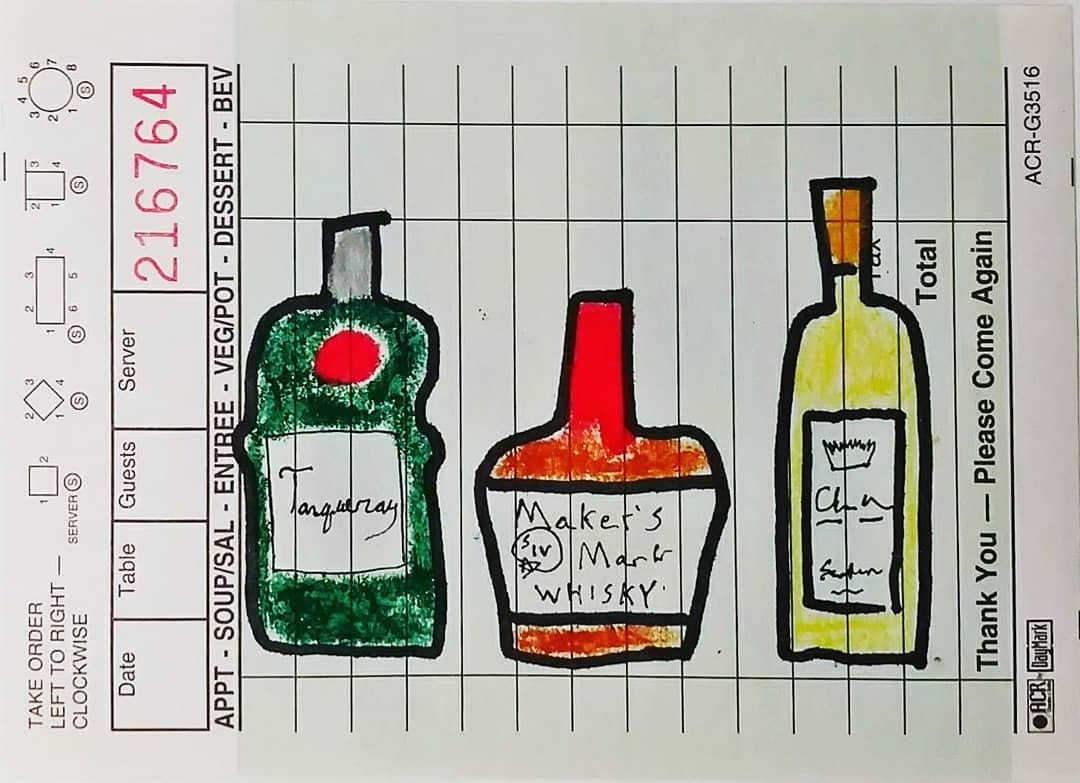 TAKE ORDER
LEFT TO RIGHT —
CLOCKWISE
SERVER Ⓢ
1 2
1 2 3 4 Ⓢ
1 2 3 4 5 6 Ⓢ
1 2 3 4 Ⓢ
1 2 3 4 5 6 7 8 Ⓢ
Date Table Guests Server 216764
APPT - SOUP/SAL - ENTREE - VEG/POT - DESSERT - BEV
Tanqueray
Maker's
S IV Mark
WHISKY.
Tax
Total
Thank You — Please Come Again
ACR by DayMark
ACR-G3516